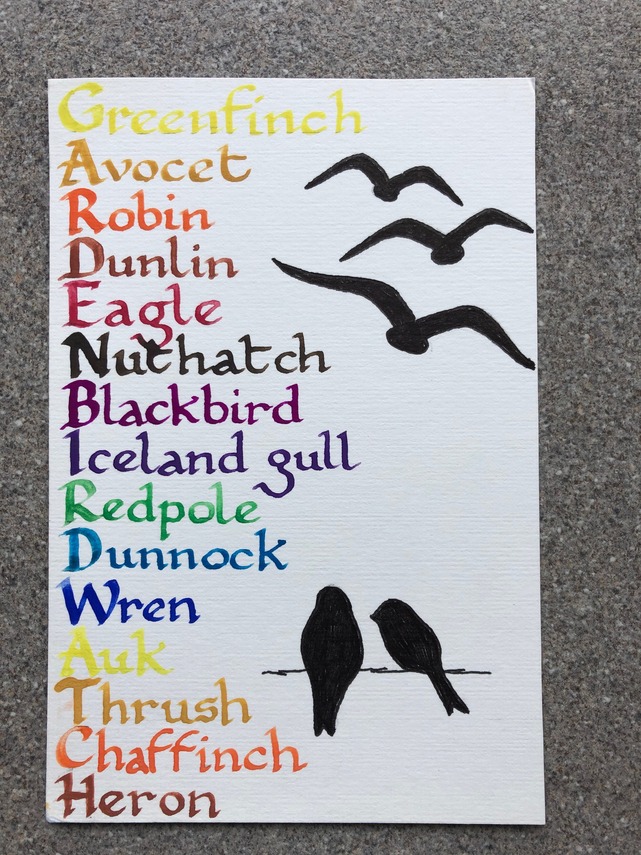 Greenfinch
Avocet
Robin
Dunlin
Eagle
Nuthatch
Blackbird
Iceland gull
Redpole
Dunnock
Wren
Auk
Thrush
Chaffinch
Heron